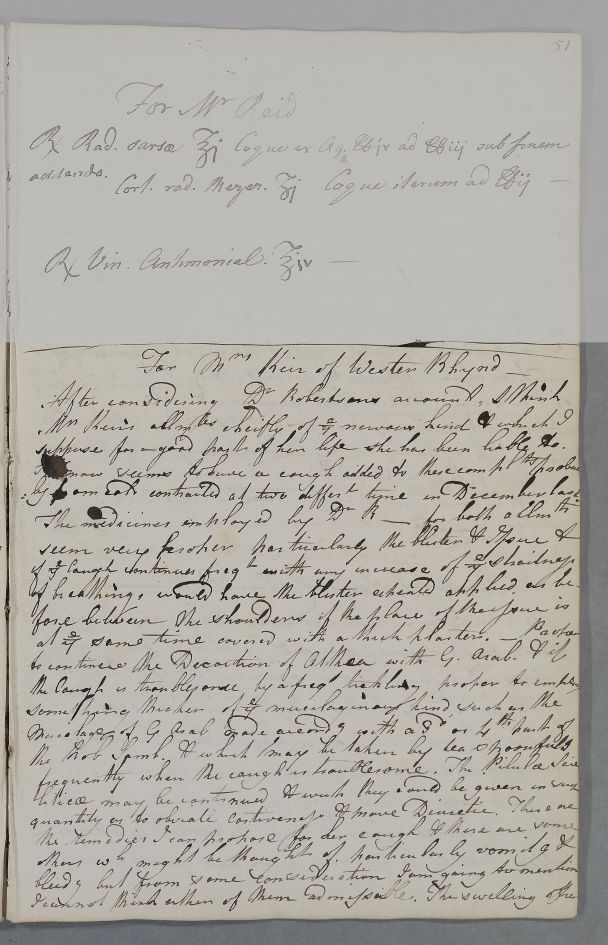 51
For Mr Reid
℞ Rad. sarsæ ʒj Coque ex Aq. ad ℔iij sub finem
addendo.
Cort. rad. Mezer. ʒj Coque iterum ad ℔ij —
℞ Vin. Antimonial. ʒiv —
For Mrs Keir of Wester Rhynd —
After considering Dr Robertsons account, I think
Mrs Keirs ailmts cheifly of ye nervous kind & which I
suppose for a good part of her life she has been liable to.
now seems to have a cough added to these complts probab
by some cold contracted at two differt time in December last
The medicines employed by Dr R — for both ailmts
seem very proper particularly the blister & Issue &
if ye Cough continues freqt with any increase of ye straitness
of breathing would have the blister applied as be-
fore between the shoulders if the place of the Issue is
at ye same time covered with a thick plaster. —
to continue the Decoction of Althea with G. Arab. & if
the Cough is troublesome by a freq tickling proper to employ
something thicker of ye mucilaginous kind such as the
Mucilage of G Arab made accordg with a 3d or 4th part of
the Rob & which may be taken by teaspoonfulls
frequently when the cough is troublesome. The Pilulæ
may be continued & wish they could be given in such
quantity as to obviate costiveness & prove Diuretic. These are
the remedies I can propose for her cough & there are some
others wh might be thought of, particularly vomitg &
bleedg but from some consideration I am going to mention
I cannot think either of them admissible. The swelling of the